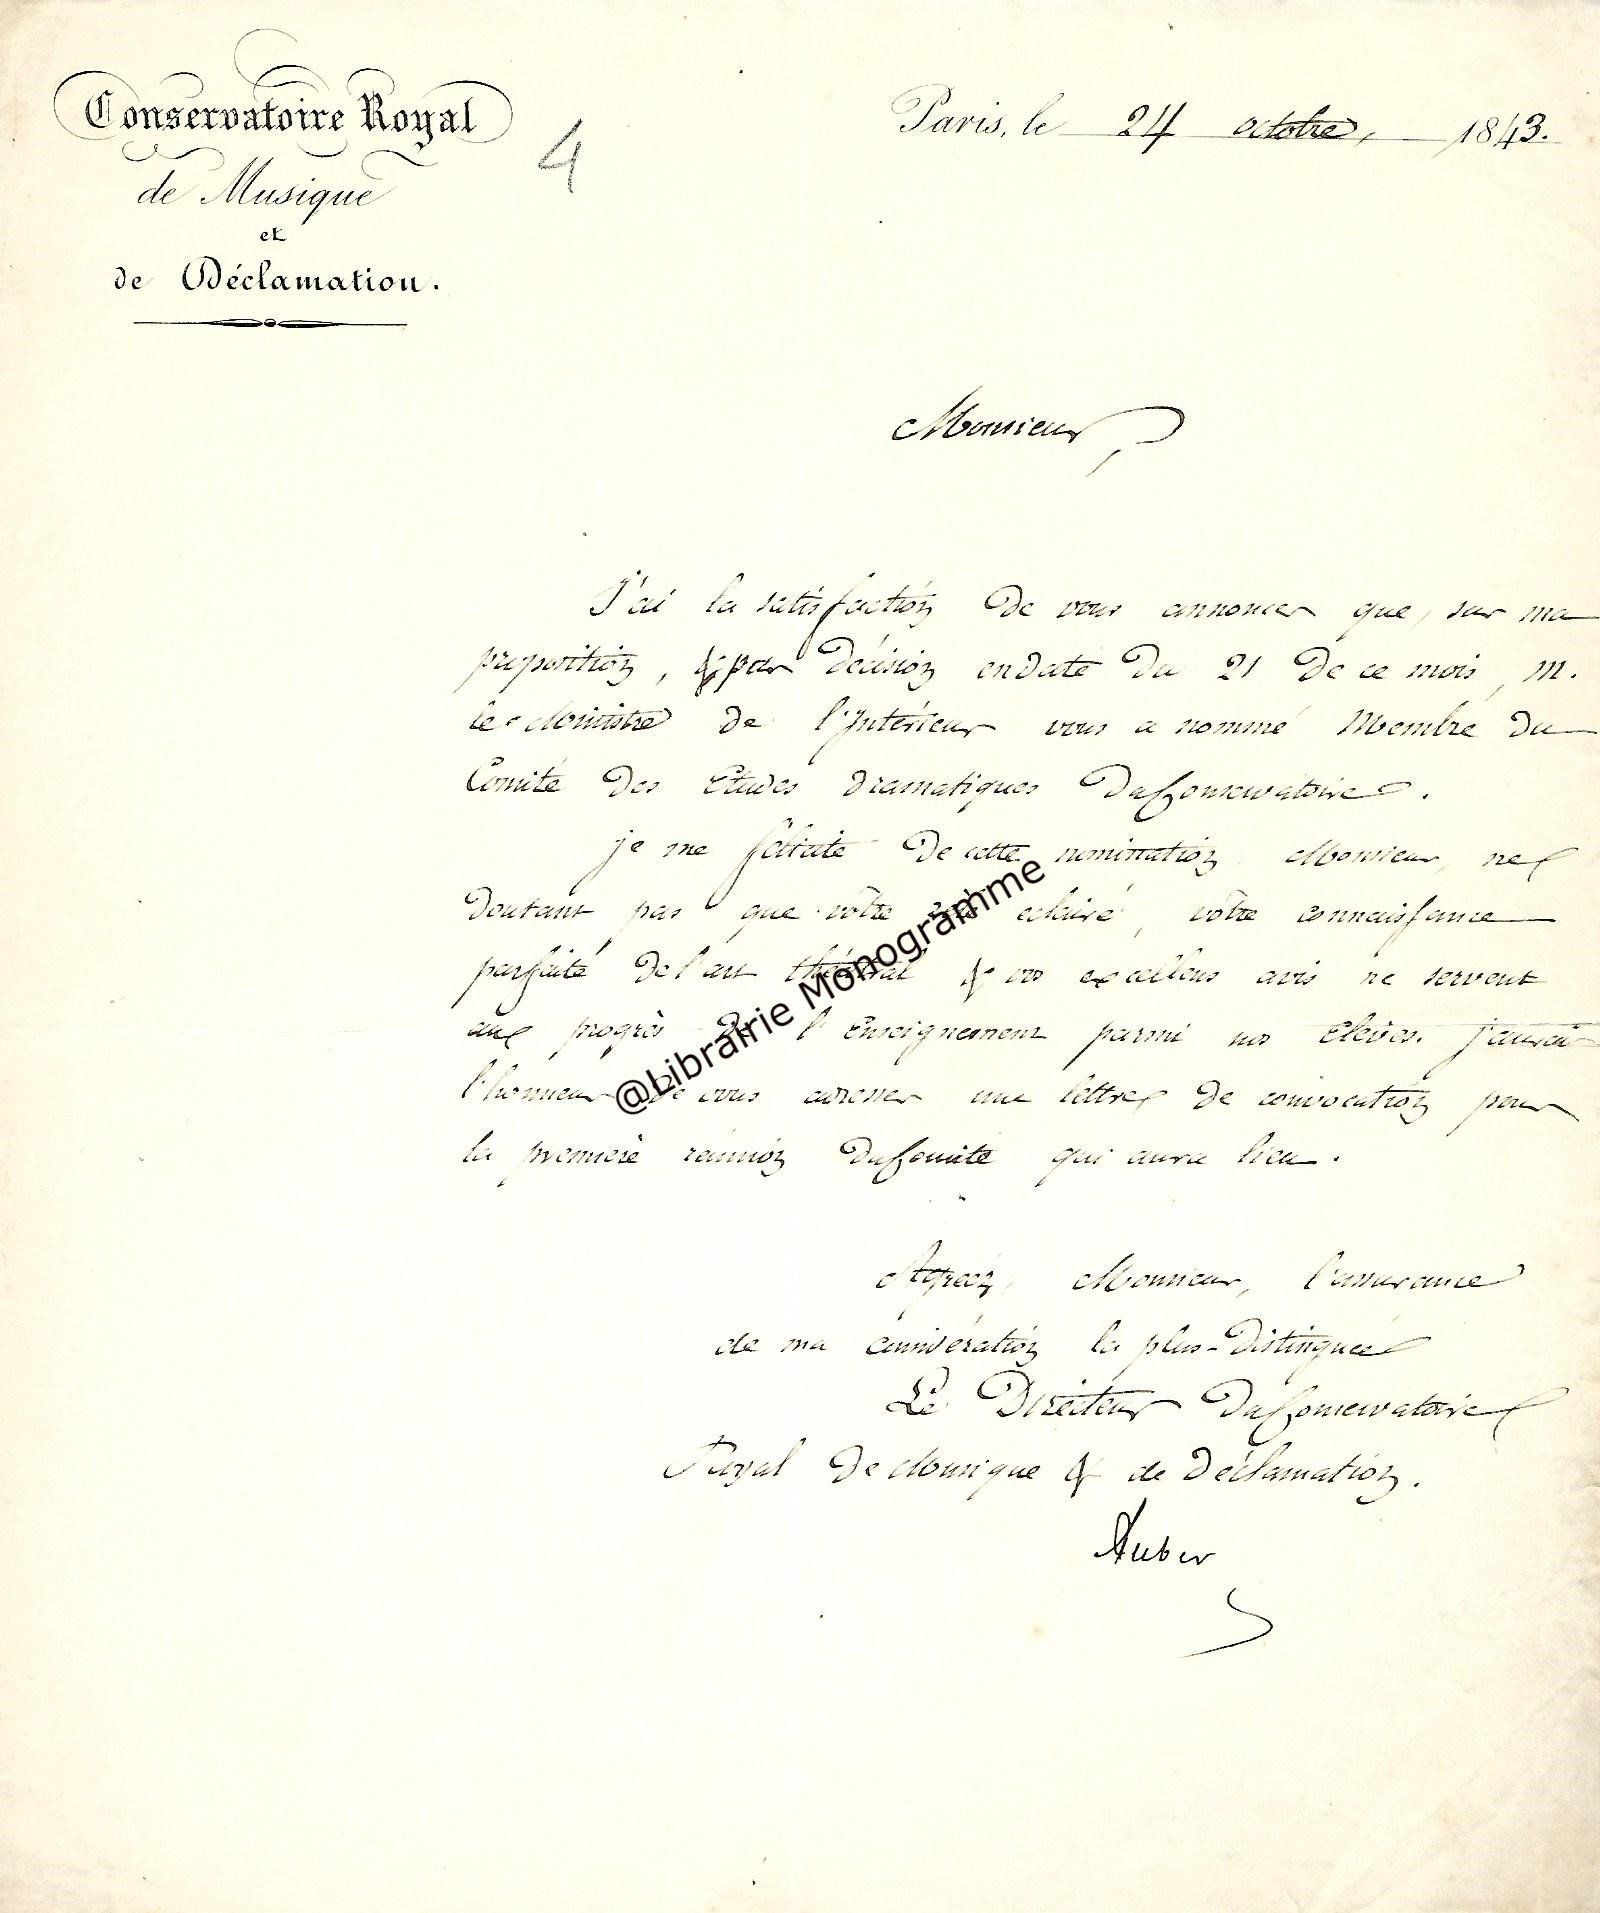 Conservatoire Royal
de Musique
et
de Déclamation.
4
Paris, le 24 octobre, 1843.
Monsieur,
J'ai la satisfaction de vous annoncer que, sur ma
proposition, & par décision en date du 21 de ce mois, M.
le Ministre de l'Intérieur vous a nommé Membre du
Comité des Etudes dramatiques du Conservatoire.
je me félicite de cette nomination, Monsieur, ne
doutant pas que vôtre zèle éclairé, vôtre connaissance
parfaite de l'art théâtral & vos excellens avis ne servent
aux progrès de l'Enseignement parmi nos Elèves. j'aurai
l'honneur de vous adresser une lettre de convocation pour
la première réunion du Comité qui aura lieu.
Agréez, Monsieur, l'assurance
de ma considération la plus distinguée
Le Directeur du Conservatoire
Royal de Musique & de Déclamation.
Auber
@Librairie Monogramme